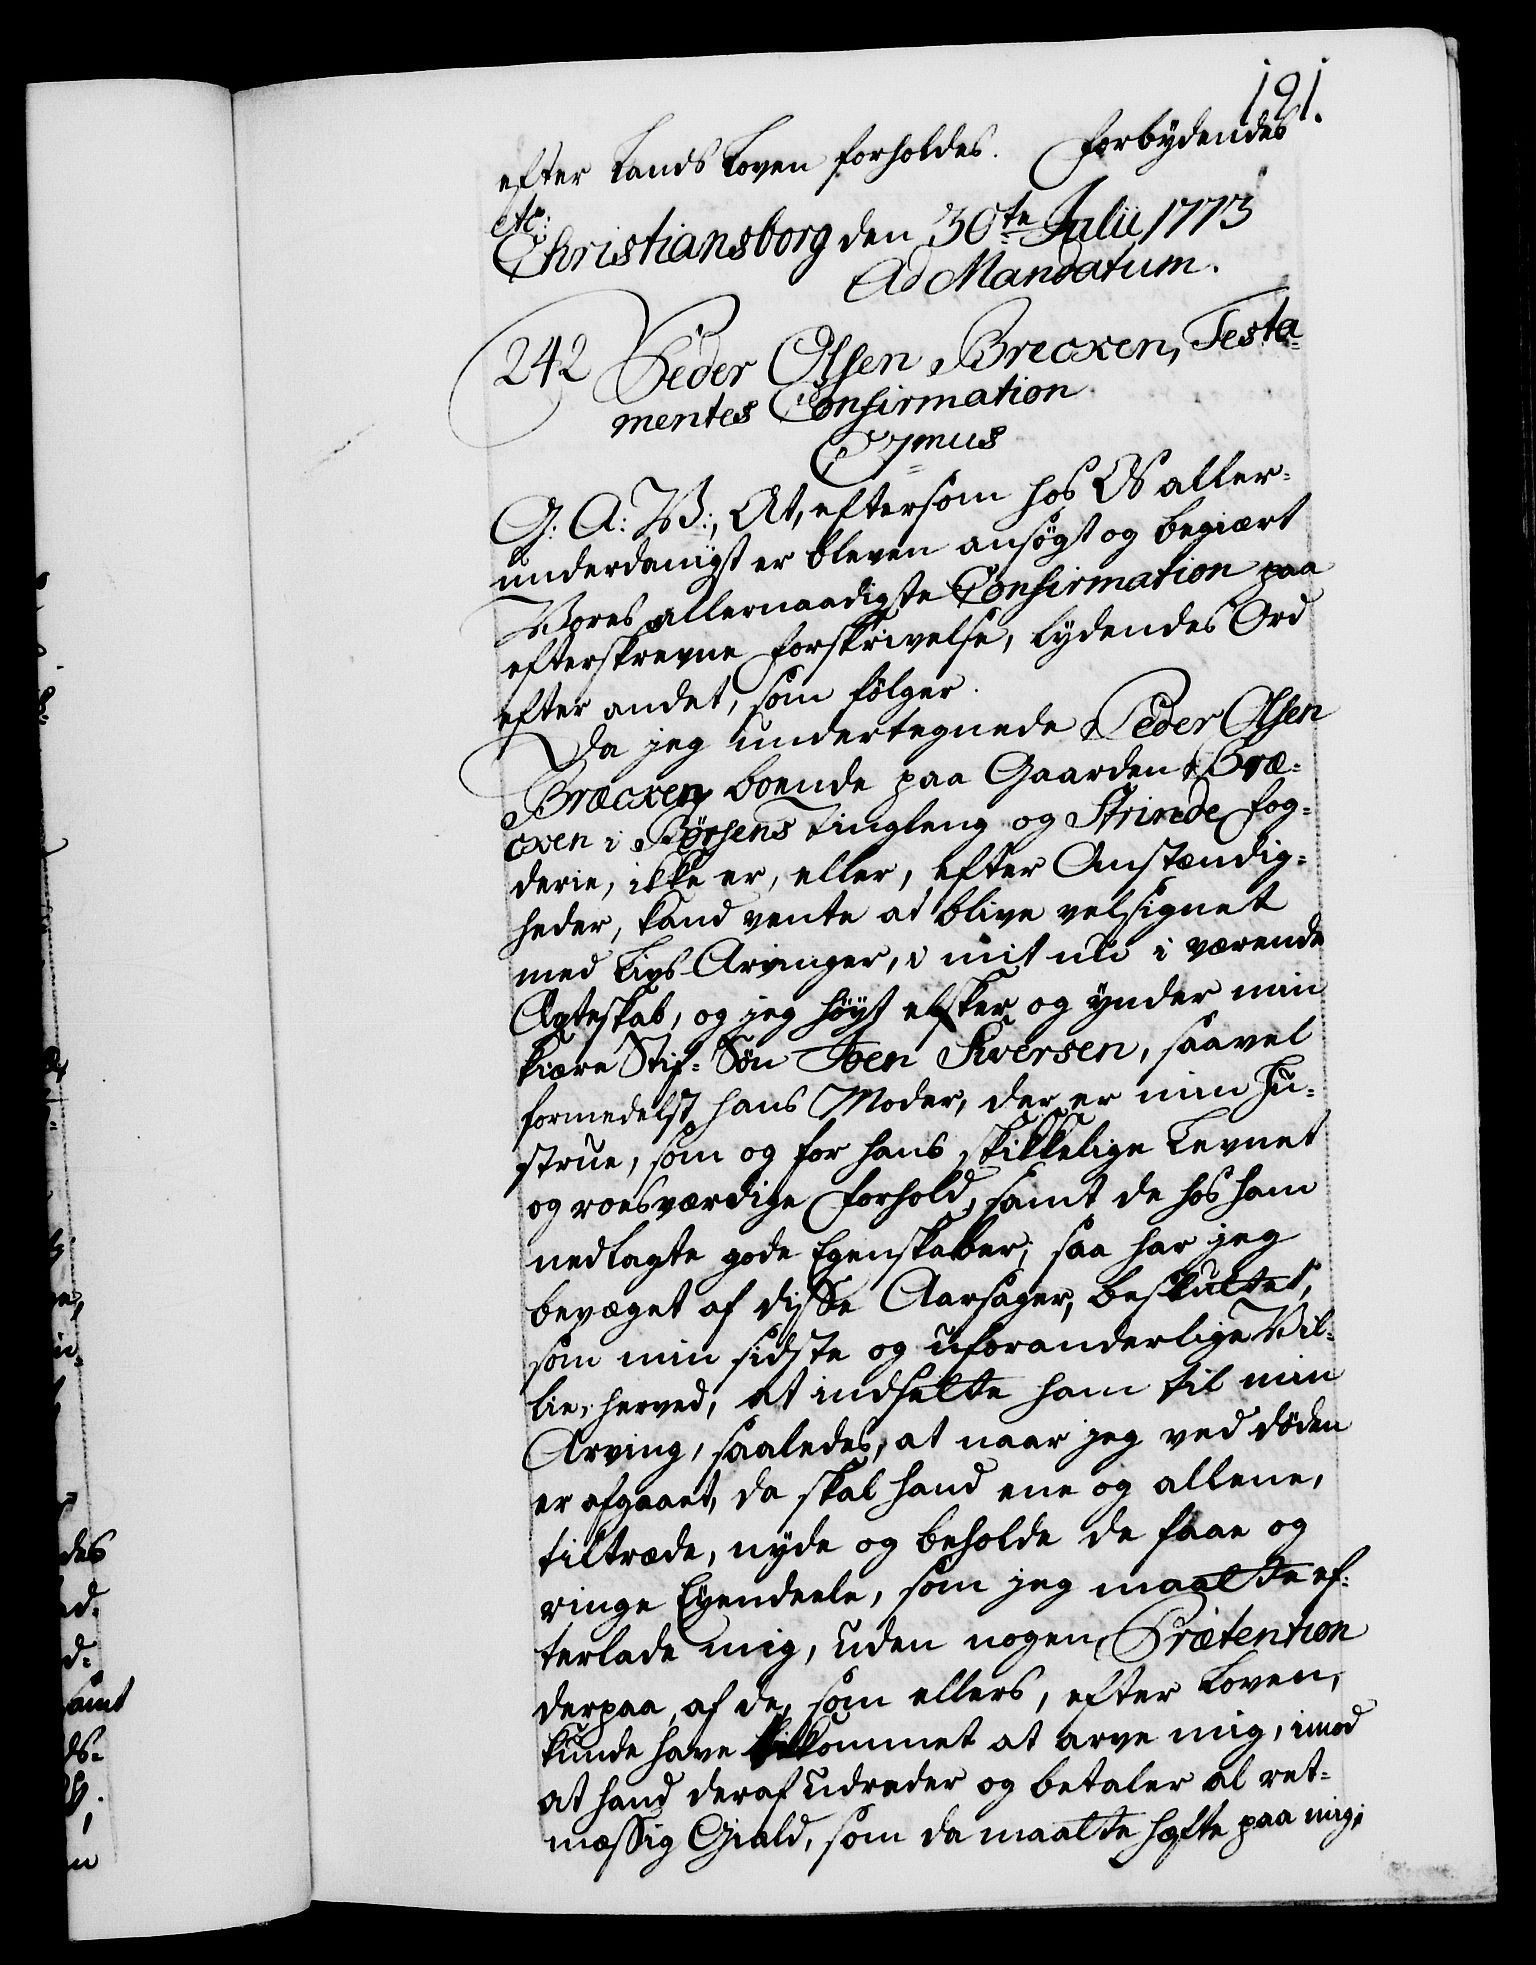 191.
efter Lands Loven forholdes. Forbydendes
etc:
Christiansborg den 30te Julii 1773
Ad Mandatum.
242 Peder Olsen Brecxen, Testa-
mentes Confirmation
C 7mus
G: A: V:, At, eftersom hos Os aller-
underdanigst er bleven ansøgt og begiært
Vores allernaadigste Confirmation paa
efterskrevne Forskrivelse, lydendes Ord
efter andet, som følger.
Da jeg undertegnede Peder Olsen
Bræcxen boende paa Gaarden Bræ-
cxen i Børsens Tinglaug og Strinde Fog-
derie, ikke er, eller, efter Anstændig-
heder, kand vente at blive velsignet
med Livs Arvinger, i mit nu i værende
Ægteskab, og jeg høyt elsker og ynder min
kiære Stif-Søn Joen Siversen, saavel
formedelst hans Moder, der er min Hu-
strue, som og for hans skikkelige Levnet
og roesværdige Forhold, samt de hos ham
nedlagte gode Egenskaber; saa har jeg
bevæget af disse Aarsager, besluttet,
som min sidste og uforanderlige Vil-
lie, herved, at indsette ham til min
Arving, saaledes, at naar jeg ved døden
er afgaaet, da skal hand ene og allene,
tiltræde, nyde og beholde de faae og
ringe Eyendeele, som jeg maatte ef-
terlade mig, uden nogen Prætention
derpaa, af de, som ellers, efter Loven,
kunde have tilkommet at arve mig, imod
at hand deraf udreder og betaler al ret-
mæssig Giæld, som da maatte hæfte paa mig;